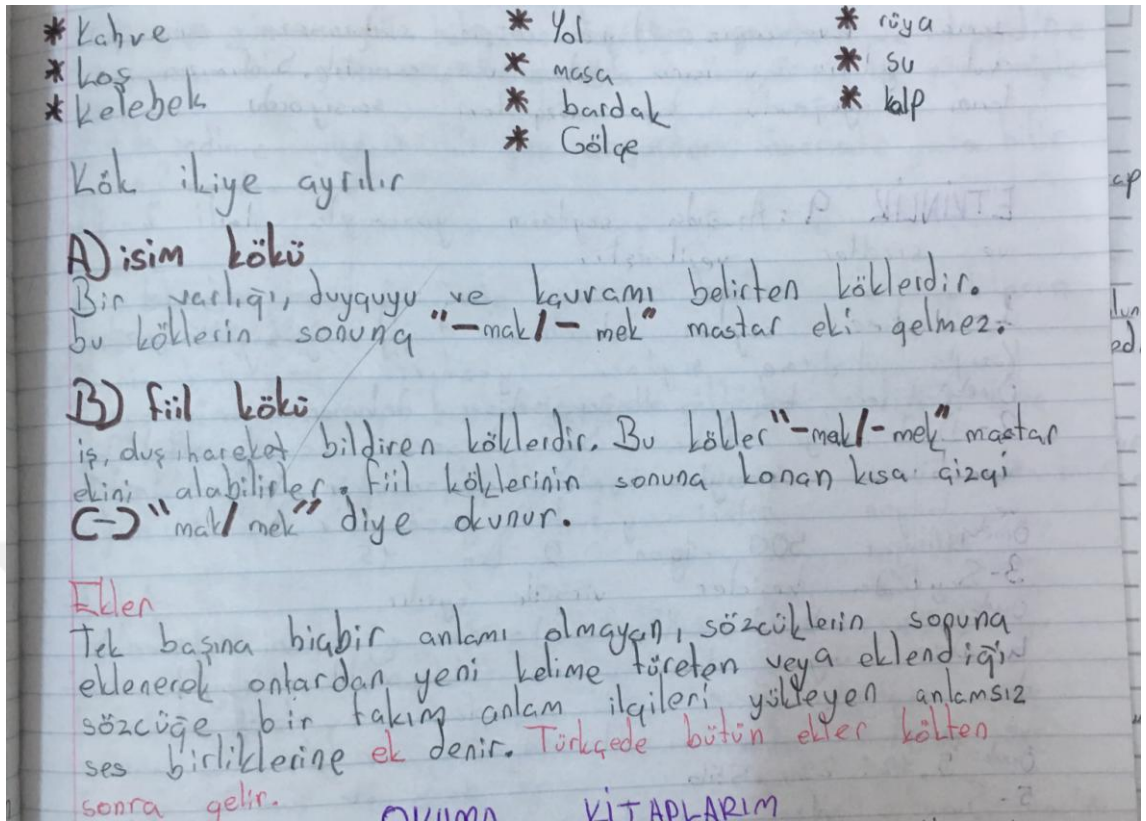 * Kahve * Yol * rüya
* koş * masa * su
* kelebek * bardak * kalp
* Gölge
Kök ikiye ayrılır
A) isim kökü
Bir varlığı, duyguyu ve kavramı belirten köklerdir.
bu köklerin sonuna "-mak/-mek" mastar eki gelmez.
B) fiil kökü
iş, duş, hareket bildiren köklerdir. Bu kökler "-mak/-mek" mastar
ekini alabilirler. Fiil köklerinin sonuna konan kısa çizgi
(-) "mak/mek" diye okunur.
Ekler
Tek başına hiçbir anlamı olmayan, sözcüklerin sonuna
eklenerek onlardan yeni kelime türeten veya eklendiği
sözcüğe bir takım anlam ilgileri yükleyen anlamsız
ses birliklerine ek denir. Türkçede bütün ekler kökten
sonra gelir.
OKUMA KİTAPLARIM